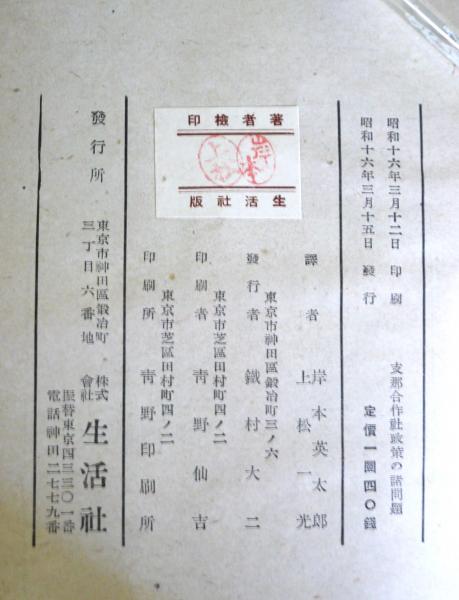 昭和十六年三月十二日　印刷
昭和十六年三月十五日　發行
支那合作社政策の諸問題
定價一圓四〇錢
著者檢印
岸本
上松
生活社版
譯者　岸本英太郎
上松一光
東京市神田區鍛冶町三ノ六
發行者　鐵村大二
東京市芝區田村町四ノ二
印刷者　靑野仙吉
東京市芝區田村町四ノ二
印刷所　靑野印刷所
發行所
東京市神田區鍛冶町
三丁目六番地
株式會社　生活社
振替東京四三三〇一番
電話神田二七七九番